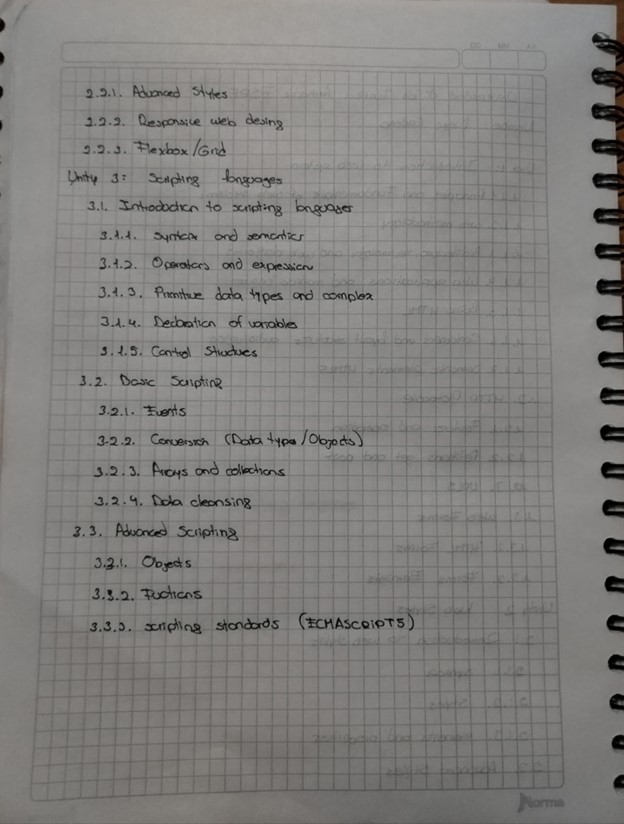 2.2.1. Advanced Styles
2.2.2. Responsive web desing
2.2.3. Flexbox/Grid
Unity 3: Scripting languages
3.1. Introduction to scripting languages
3.1.1. Syntax and semantics
3.1.2. Operators and expression
3.1.3. Primitive data types and complex
3.1.4. Declaration of variables
3.1.5. Control Structures
3.2. Basic Scripting
3.2.1. Events
3.2.2. Conversion (Data types/Objects)
3.2.3. Arrays and collections
3.2.4. Data cleansing
3.3. Advanced Scripting
3.3.1. Objects
3.3.2. Fuctions
3.3.3. scripting standards (ECMASCRIPTS)
Norma